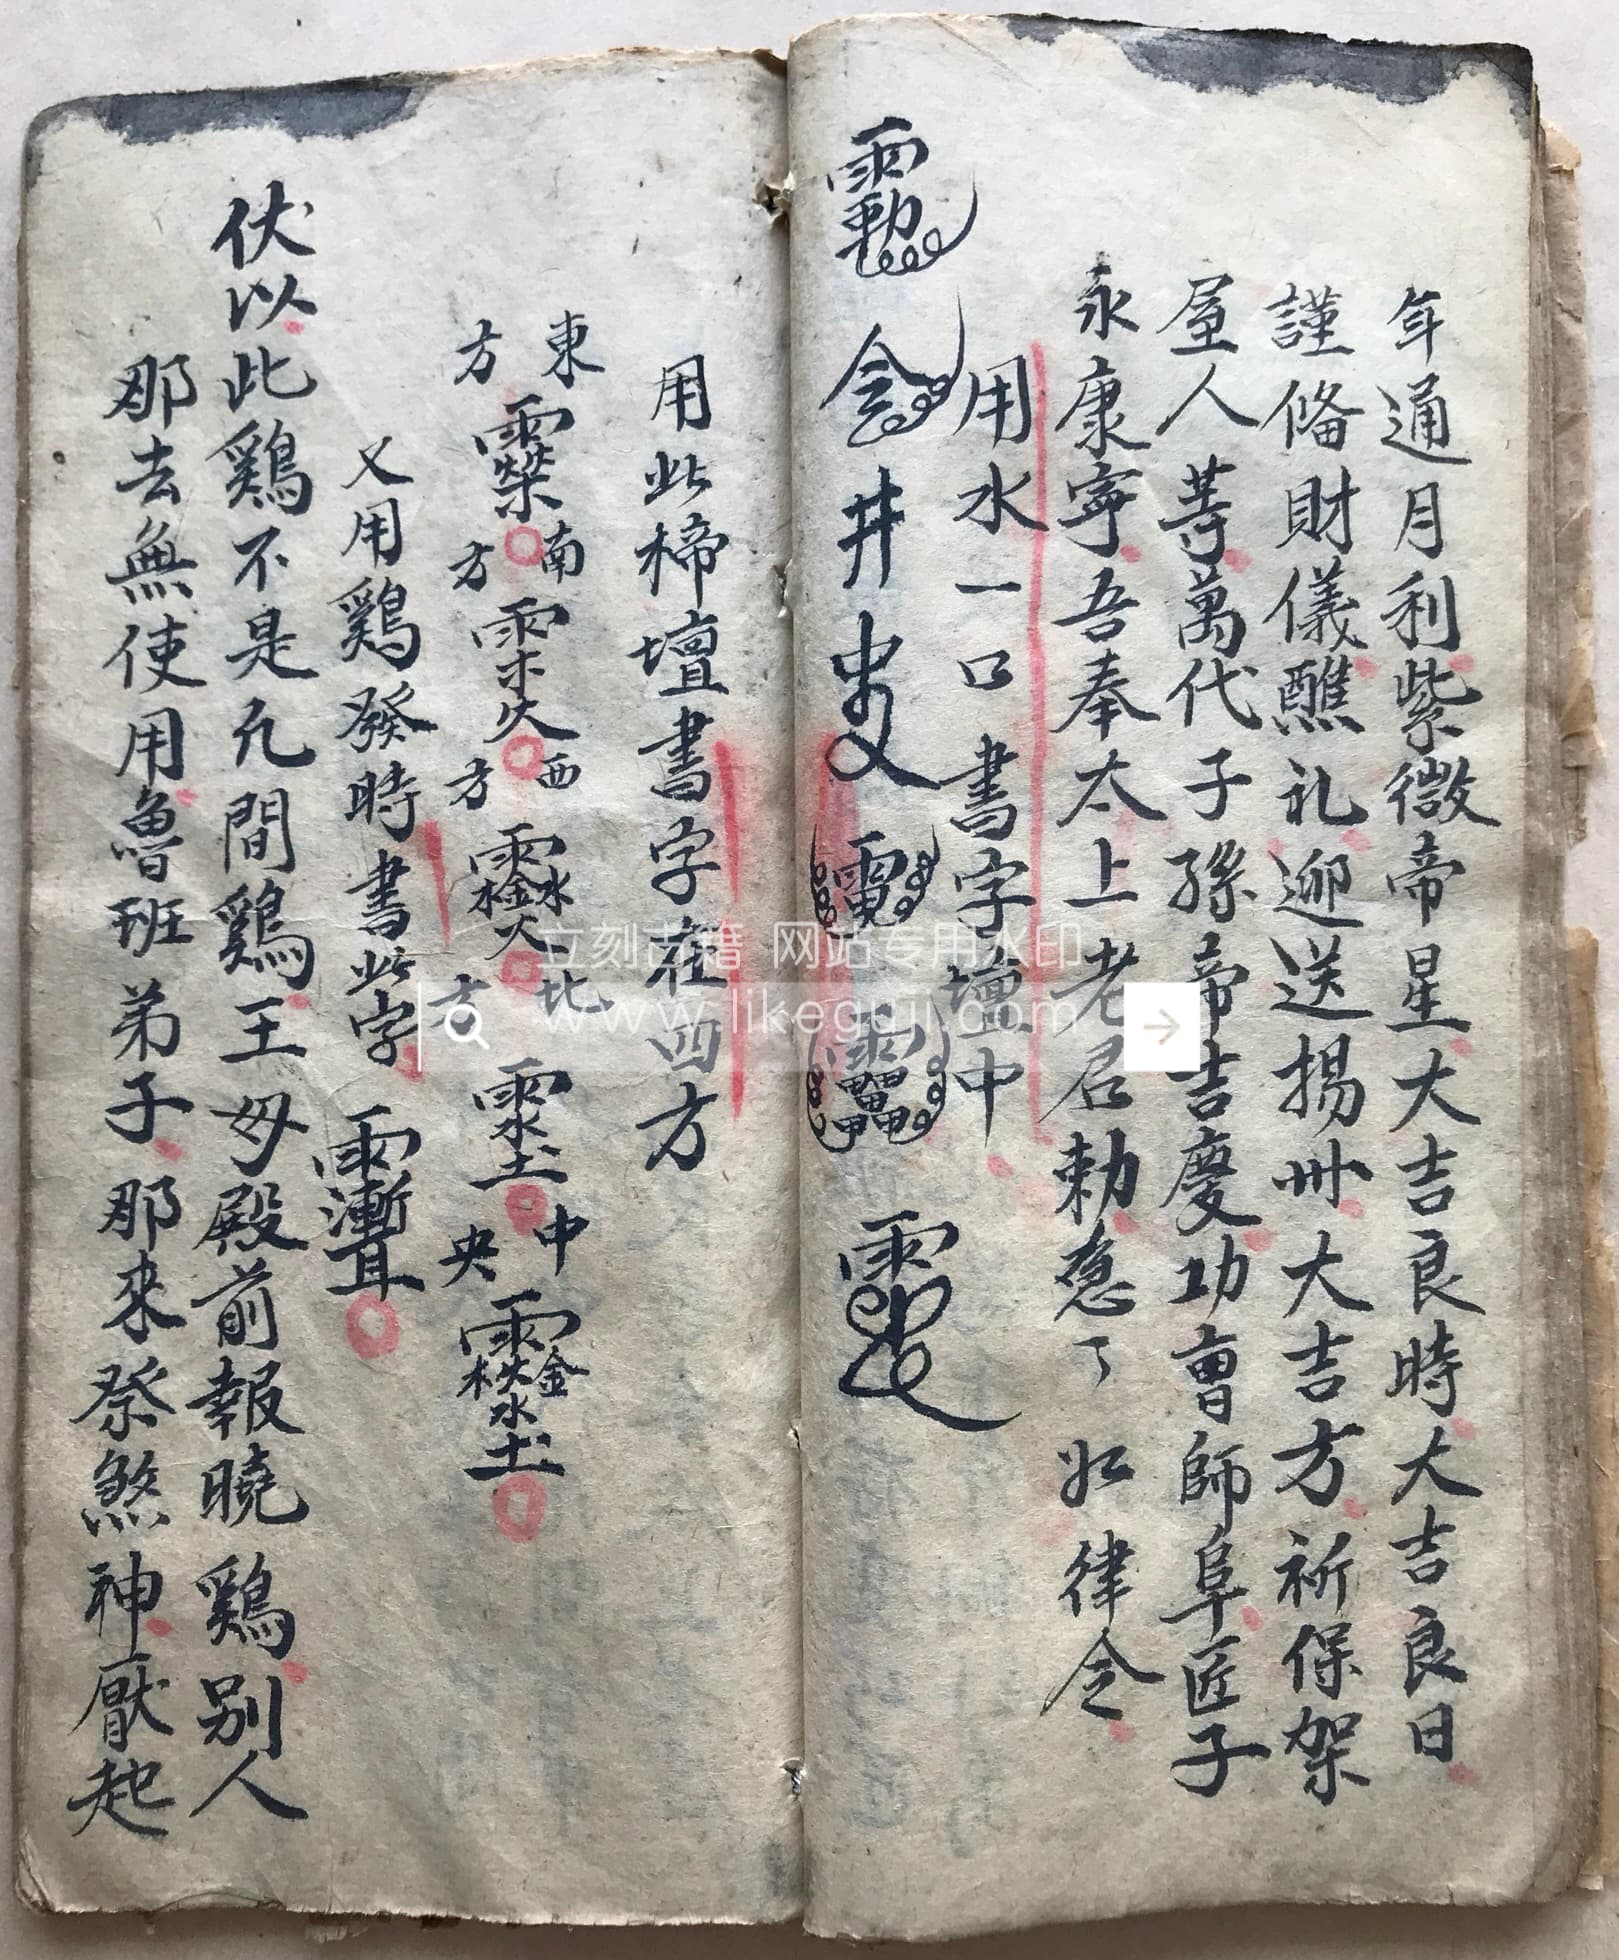 年通月利紫微帝星大吉良時大吉良日
謹俻財儀醮礼迎送揚卅大吉方祈保架
屋人等萬代子孫帝吉慶功曹師阜匠子
永康寧吾奉太上老君勅急了如律令
用水一口書字壇中
井
用此樀壇書字在四方
東方
南方
西方
北方
中央
又用鷄發時書此字
伏以此鷄不是凢間鷄王母殿前報曉鷄別人
那去無使用魯班弟子那来祭煞神厭起
立刻古籍 网站专用水印
www.likeguji.com